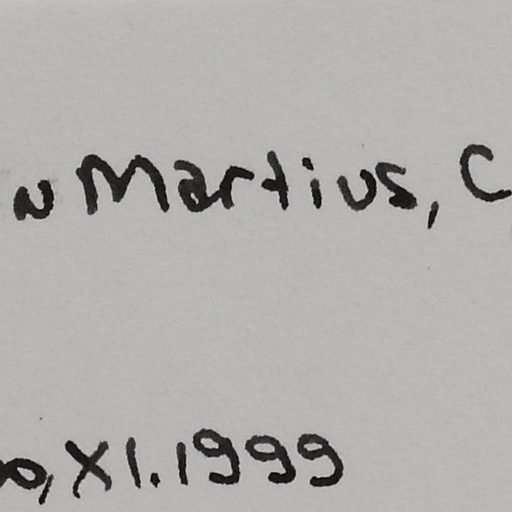 Martius, C
XI.1999